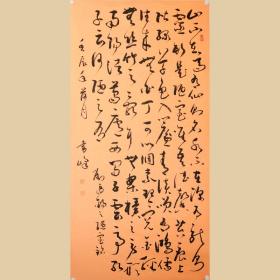 山不在高有仙则名水不在深有龙则
灵斯是陋室惟吾德馨苔痕
上阶绿草色入帘青谈笑有鸿儒
往来无白丁可以调素琴阅金经
无丝竹之乱耳无案牍之劳形
南阳诸葛庐西蜀子云亭孔
子云何陋之有 刘禹锡之陋室铭
壬辰年 月